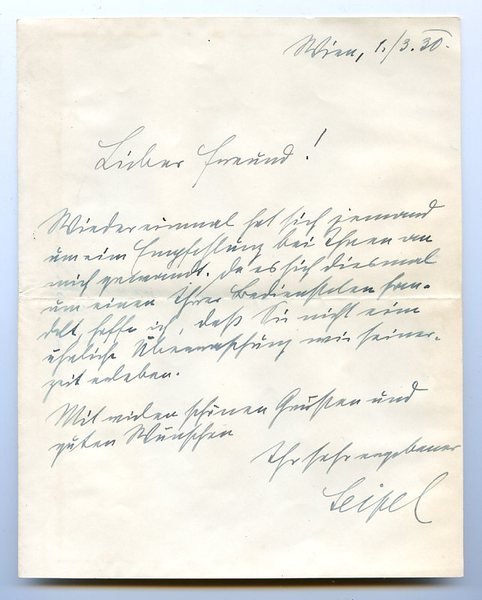 Wien, 1./3.30.
Lieber Freund!
Wiedereinmal hat sich jemand
um eine Empfehlung bei Ihnen an
mich gewandt. Da es sich diesmal
um einen Ihrer Bediensteten han-
delt, hoffe ich, daß Sie nicht eine
ähnliche Überraschung wie seiner-
zeit erleben.
Mit vielen schönen Grüßen und
guten Wünschen
Ihr sehr ergebener
Seipel